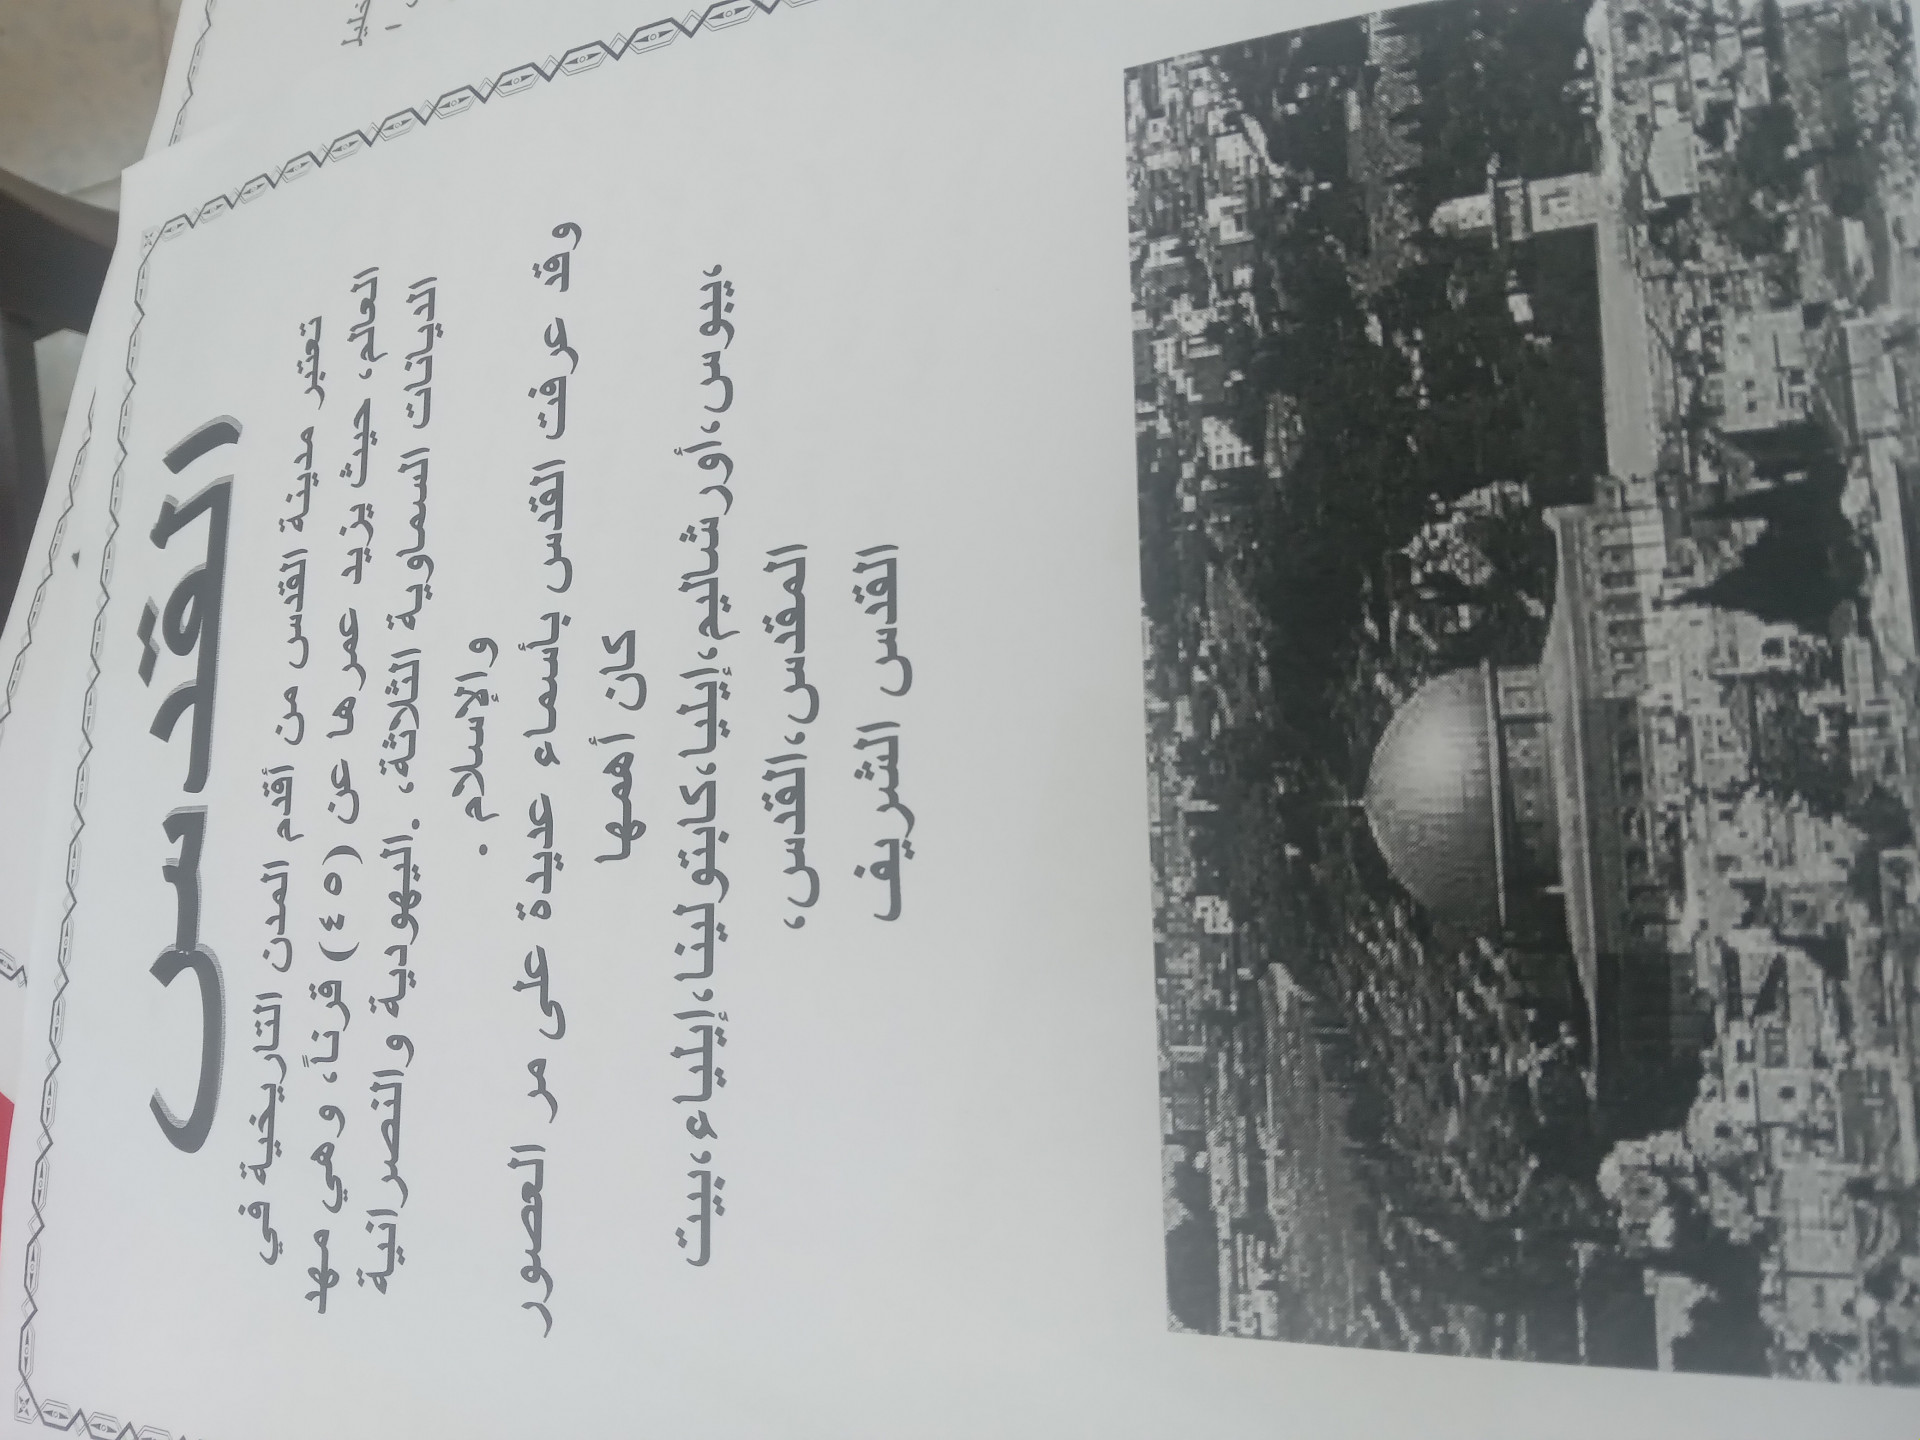 القدس
تعتبر مدينة القدس من أقدم المدن التاريخية في
العالم، حيث يزيد عمرها عن (٤٥) قرناً، وهي مهد
الديانات السماوية الثلاثة، .اليهودية والنصرانية
والإسلام .
وقد عرفت القدس بأسماء عديدة على مر العصور
كان أهمها
،يبوس،،أورشاليم،،إيليا،،كابتولينا،،إيلياء،،بيت
المقدس،،القدس،
القدس الشريف